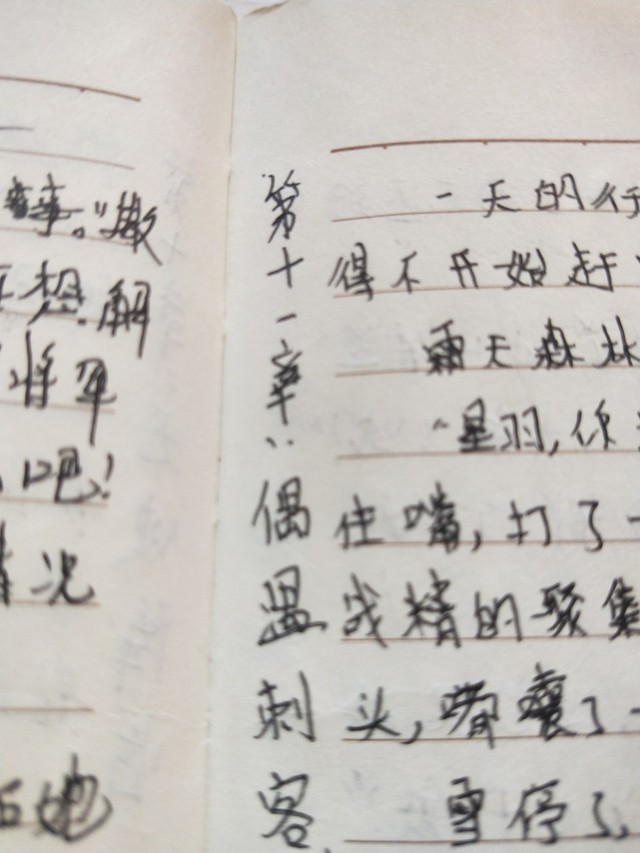 事。”撒
想解
将军
吧！
情况
她
第十一章：偶遇刺客
一天的行
得不开始赶
霜天森林
“星羽，你
住嘴，打了一
成精的
头，嘟囔了一
雪停了，